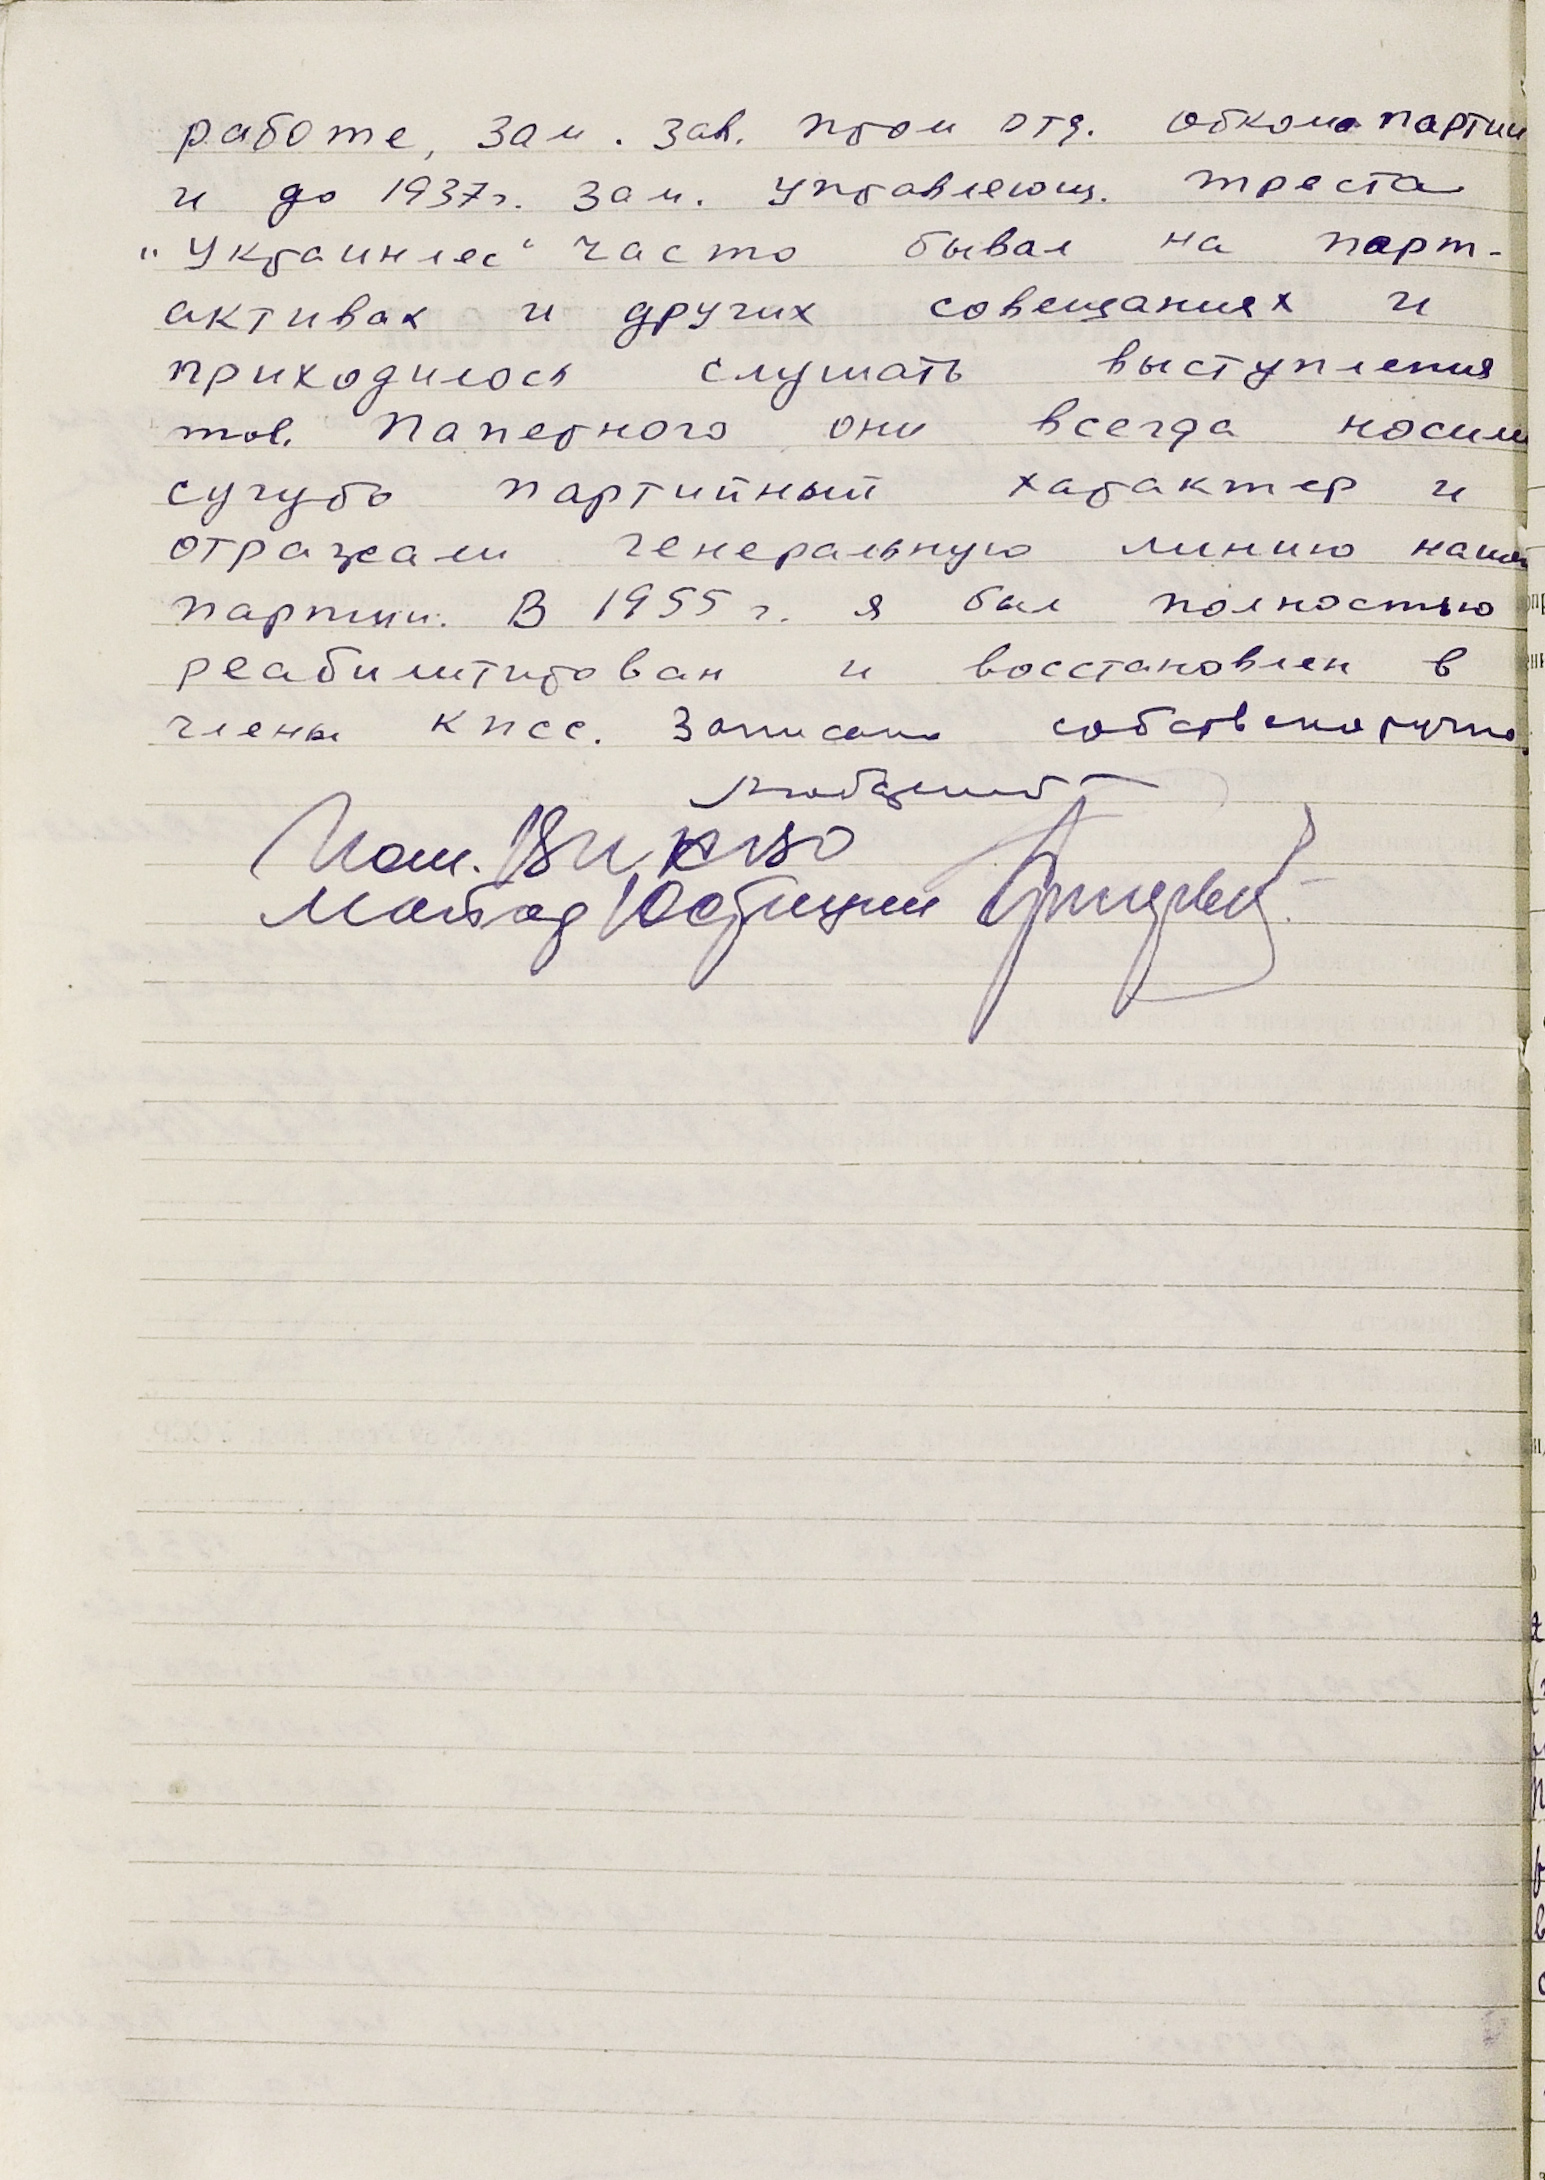 работе, зам. зав. пром отд. обкома партии
и до 1937г. зам. управляющ. треста
"Украинлес" часто бывал на парт-
активах и других совещаниях и
приходилось слушать выступления
тов. Паперного они всегда носили
сугубо партийный характер и
отражали генеральную линию нашей
партии. В 1955 г. я был полностью
реабилитирован и восстановлен в
члены КПСС. Записано собственноручно.
Пом. ВП КВО
Майор Юстиции